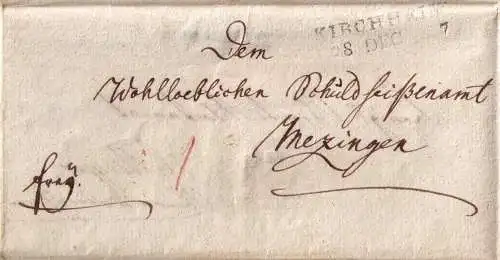 KIRCHHEIM
28 DEC 7
Dem
Wohlloeblichen Schuldheißenamt
Mezingen
frey.